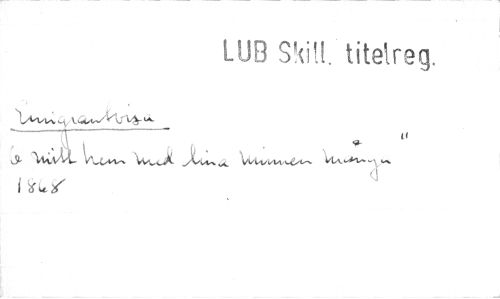 LUB Skill. titelreg.
Emigrantvisa
mitt hem med minnen många"
1868